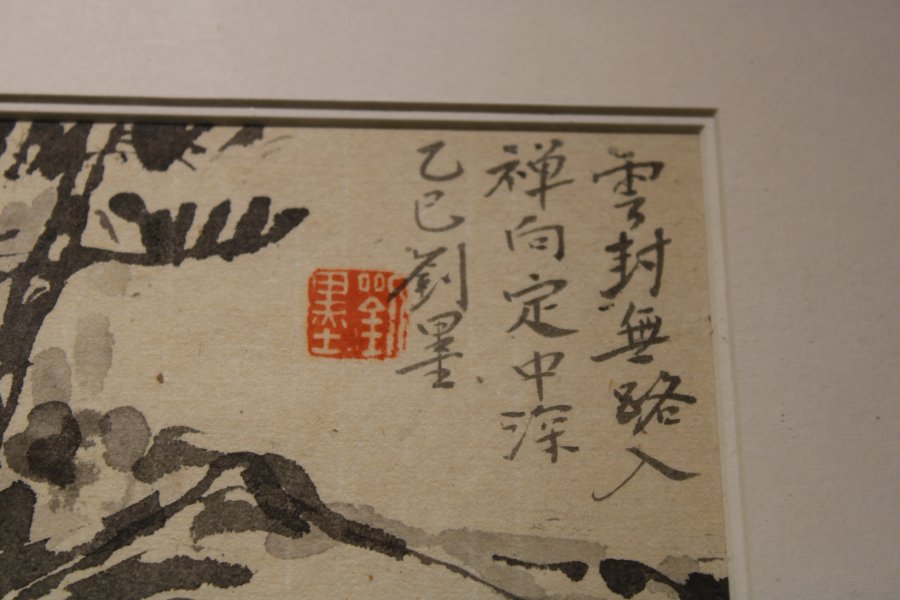 雲封無路入
禅向定中深
乙巳劉墨
劉墨